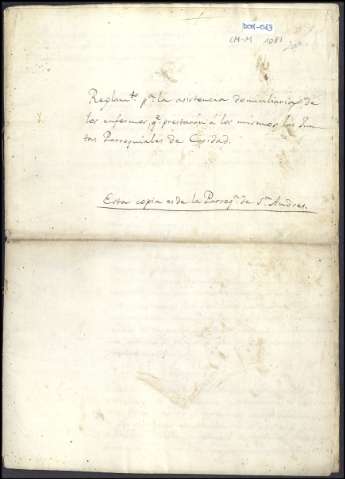 DON-043
CM-M 1081
Reglamto. pa. la asistencia domiciliaria de
los enfermos, qe. prestarán á los mismos las Jun-
tas Parroquiales de Caridad.
Esta copia es de la Parroqa. de Sn. Andres.